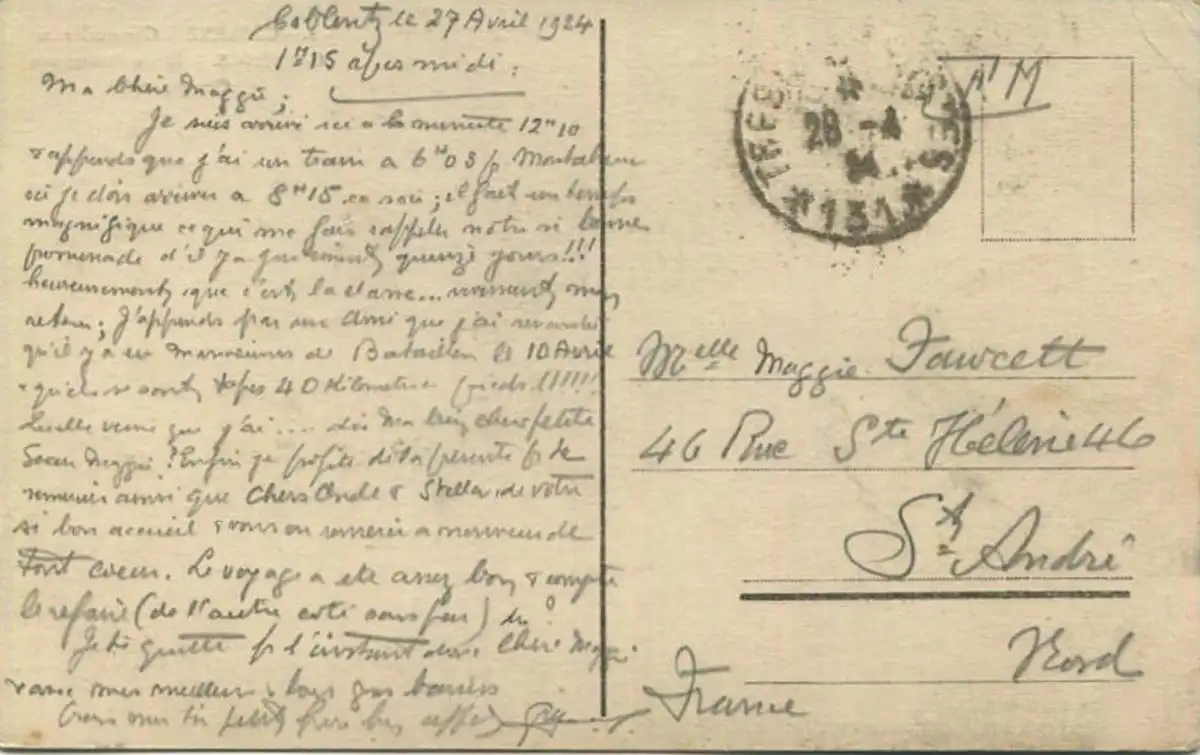 Coblentz le 27 Avril 1924
1H15 après midi.
Ma Chère Maggie;
Je suis arrivé ici a la minute 12H10
& apprends que j'ai un train a 6H03 p. Montabaur
ou je dois arriver a 8H15 ce soir; il fait un temps
magnifique ce qui me fais rappeler notre si bonne
promenade d'il y a quinze jours!!!
heureusement que c'est la classe... vivement
retour; J'apprends par un ami que j'ai
qu'il y a eu manœuvres de Bataillon le 10 Avril
& qu'ils se sont tapés 40 Kilomètres pieds!!!!!!
Quelle veine que j'ai .... dis Ma bien chère petite
Sœur Maggie? Enfin je profite de la présente p. te
remercier ainsi que Chers Oncle & Stella, de votre
si bon accueil & vous en remercie a nouveau de
tout cœur. Le voyage a été assez bon & compte
le refaire (de l'autre coté sans peur)
Je te quitte p. l'instant donc Chère Maggie
mes meilleurs & bons gros baisers
ton petit frère bien aff.
TRESOR POSTES
28 - 4
24
*131*
F M
Melle Maggie Fawcett
46 Rue Ste Hélène 46
St André
Nord
France